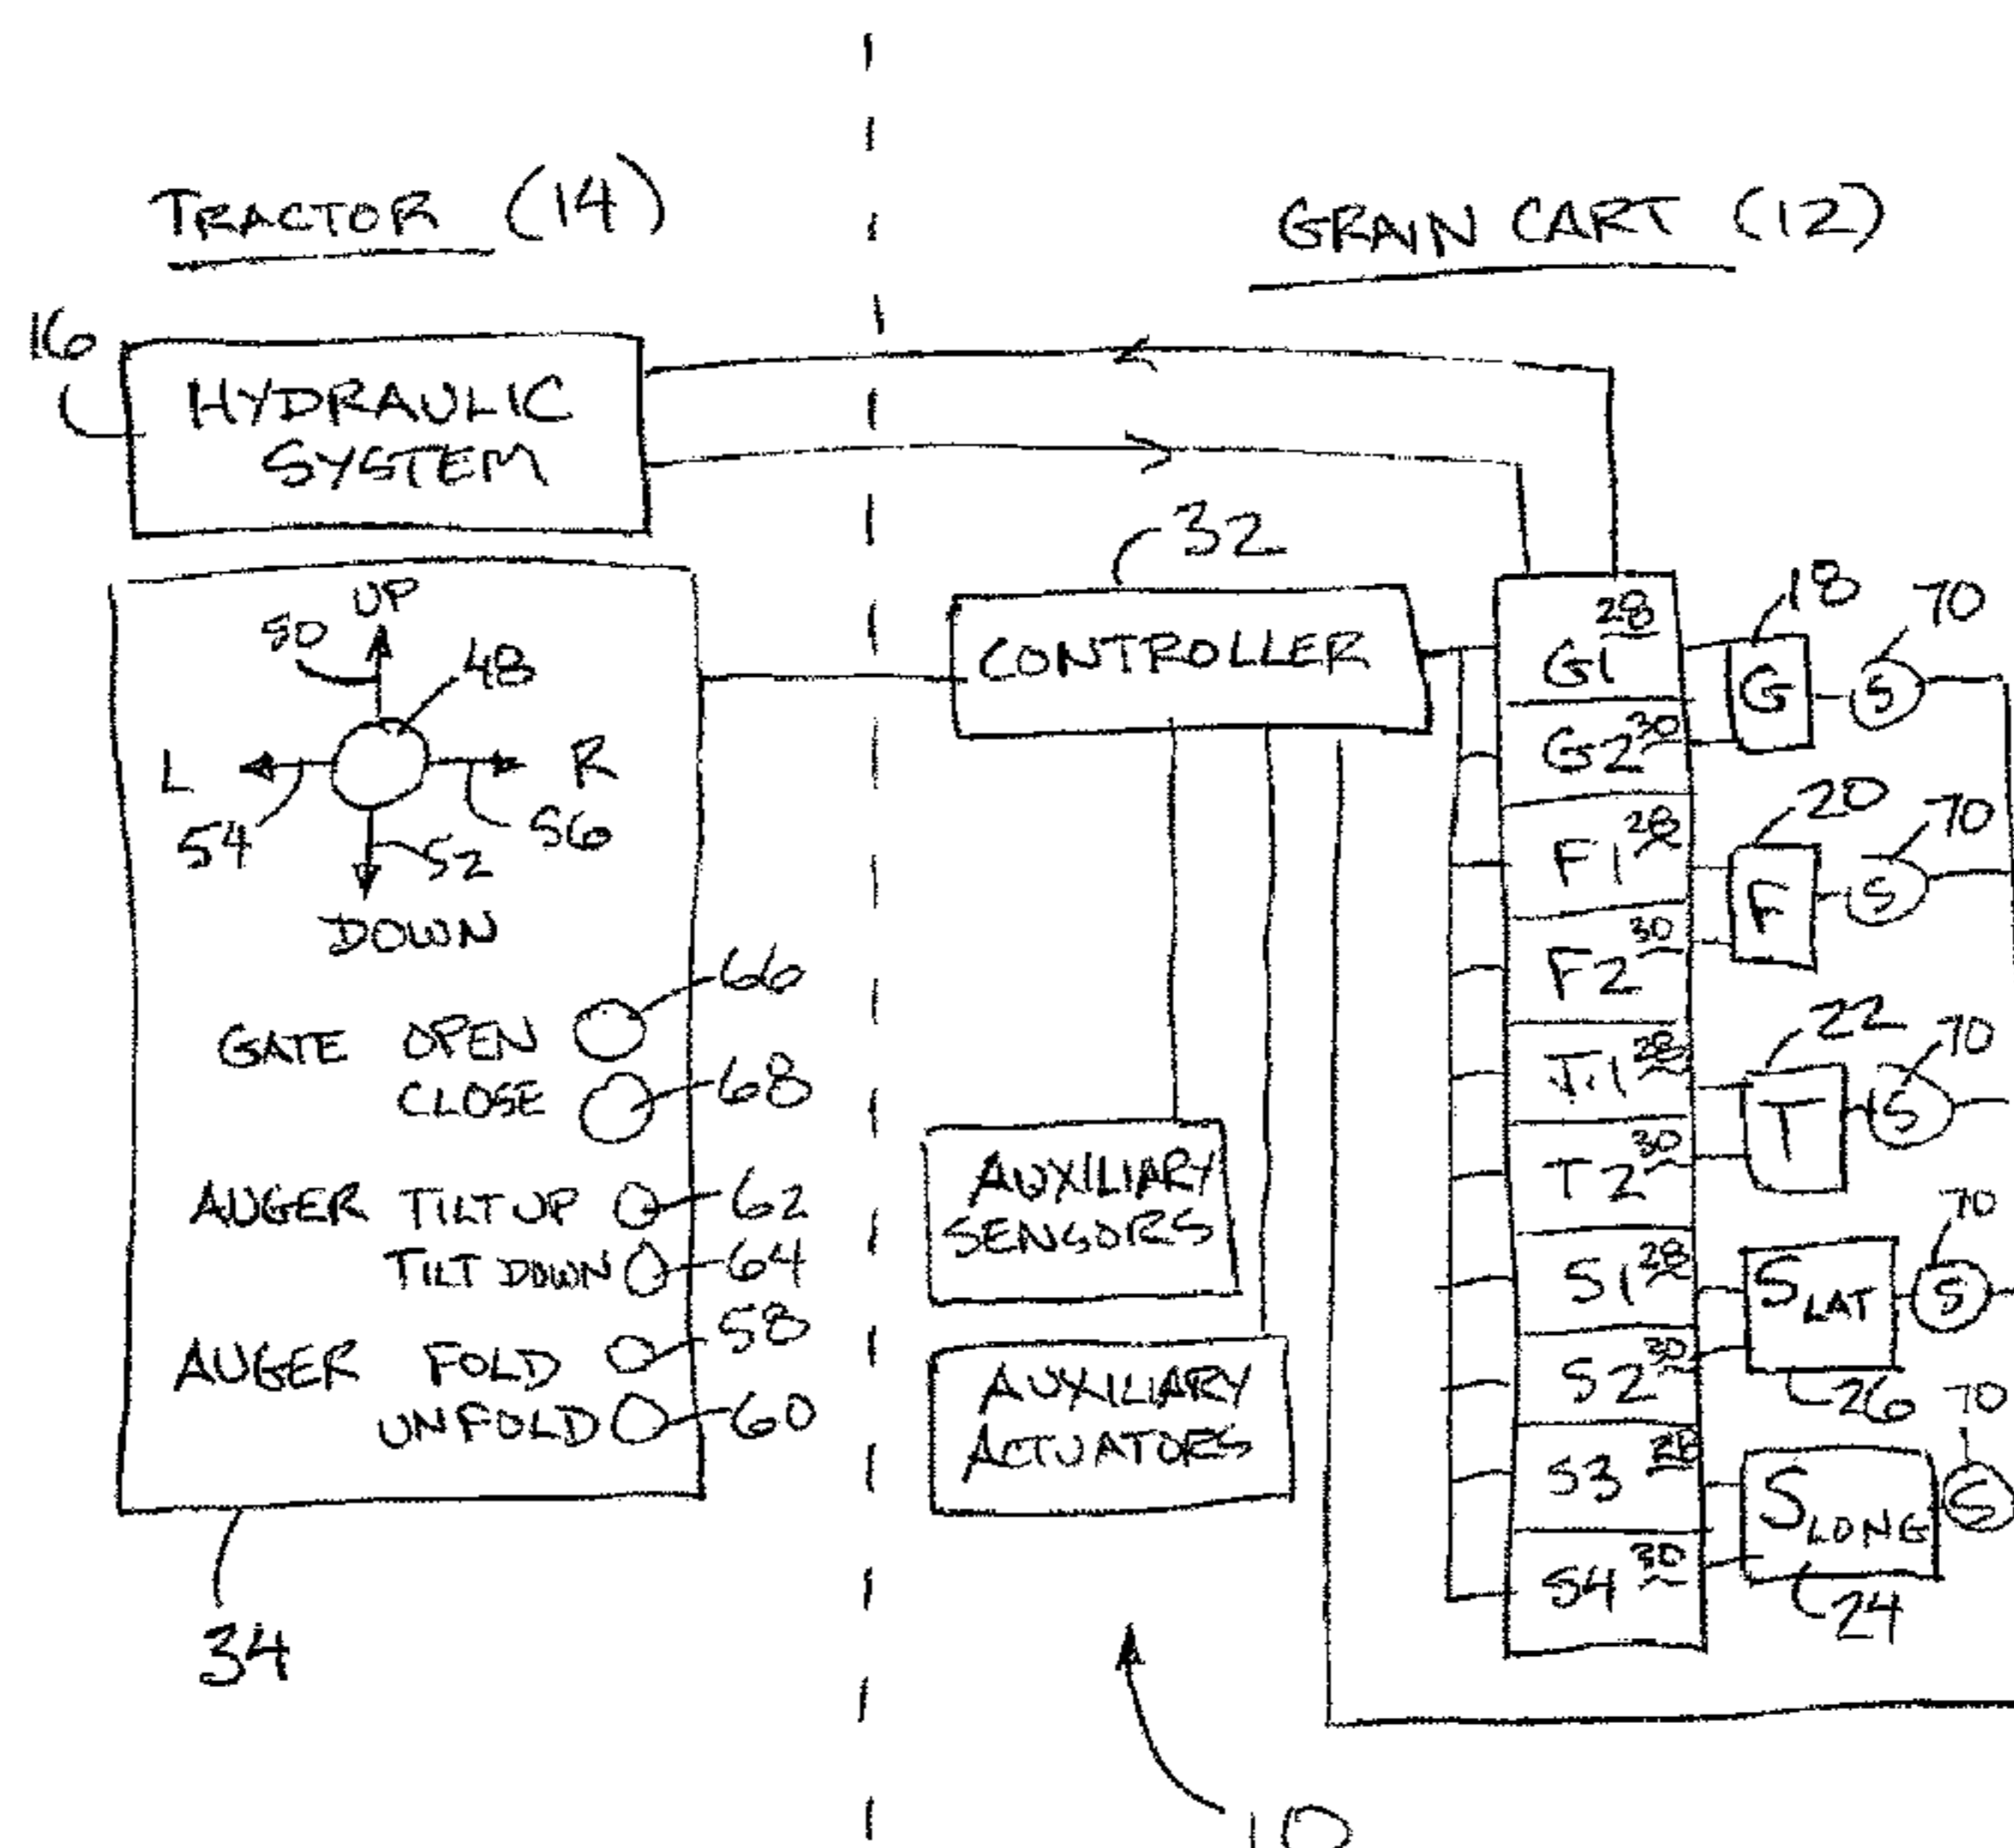 TRACTOR (14)
GRAIN CART (12)
16
HYDRAULIC
SYSTEM
UP
50
48
L
R
54
56
52
DOWN
66
GATE OPEN
CLOSE
68
AUGER TILT UP
62
TILT DOWN
64
AUGER FOLD
58
UNFOLD
60
34
32
CONTROLLER
AUXILIARY
SENSORS
AUXILIARY
ACTUATORS
G1 28
G2 30
F1 28
F2 30
T1 28
T2 30
S1 28
S2 30
S3 28
S4 30
18
70
G
S
20
70
F
S
22
70
T
S
70
S LAT
S
26
70
S LONG
S
24
10